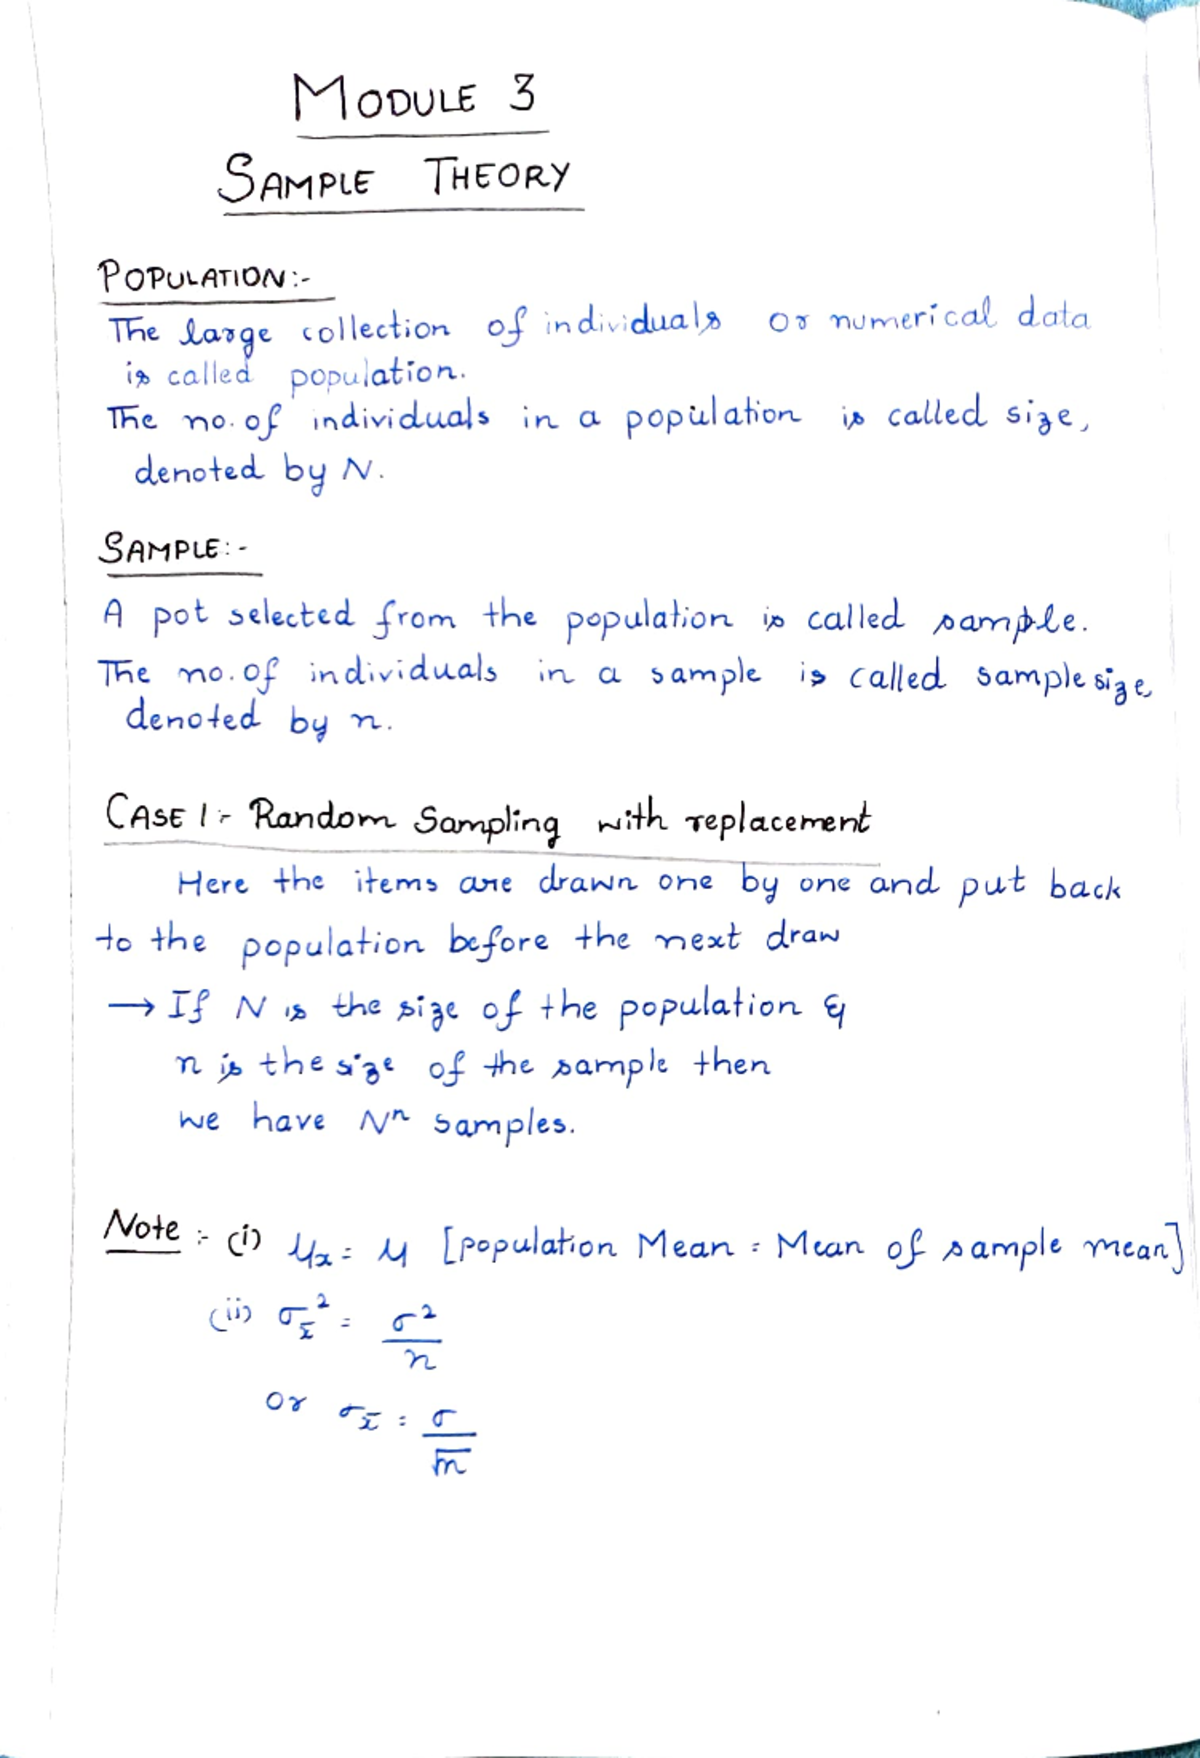 MODULE 3
SAMPLE THEORY
POPULATION:-
The large collection of individuals or numerical data
is called population.
The no. of individuals in a population is called size,
denoted by N.
SAMPLE:-
A pot selected from the population is called sample.
The no. of individuals in a sample is called sample size,
denoted by n.
CASE 1:- Random Sampling with replacement
Here the items are drawn one by one and put back
to the population before the next draw
→ If N is the size of the population &
n is the size of the sample then
we have Nⁿ samples.
Note :- (i) μx = μ [population Mean = Mean of sample mean]
(ii) σx̄² = σ²/n
or σx̄ = σ/√n